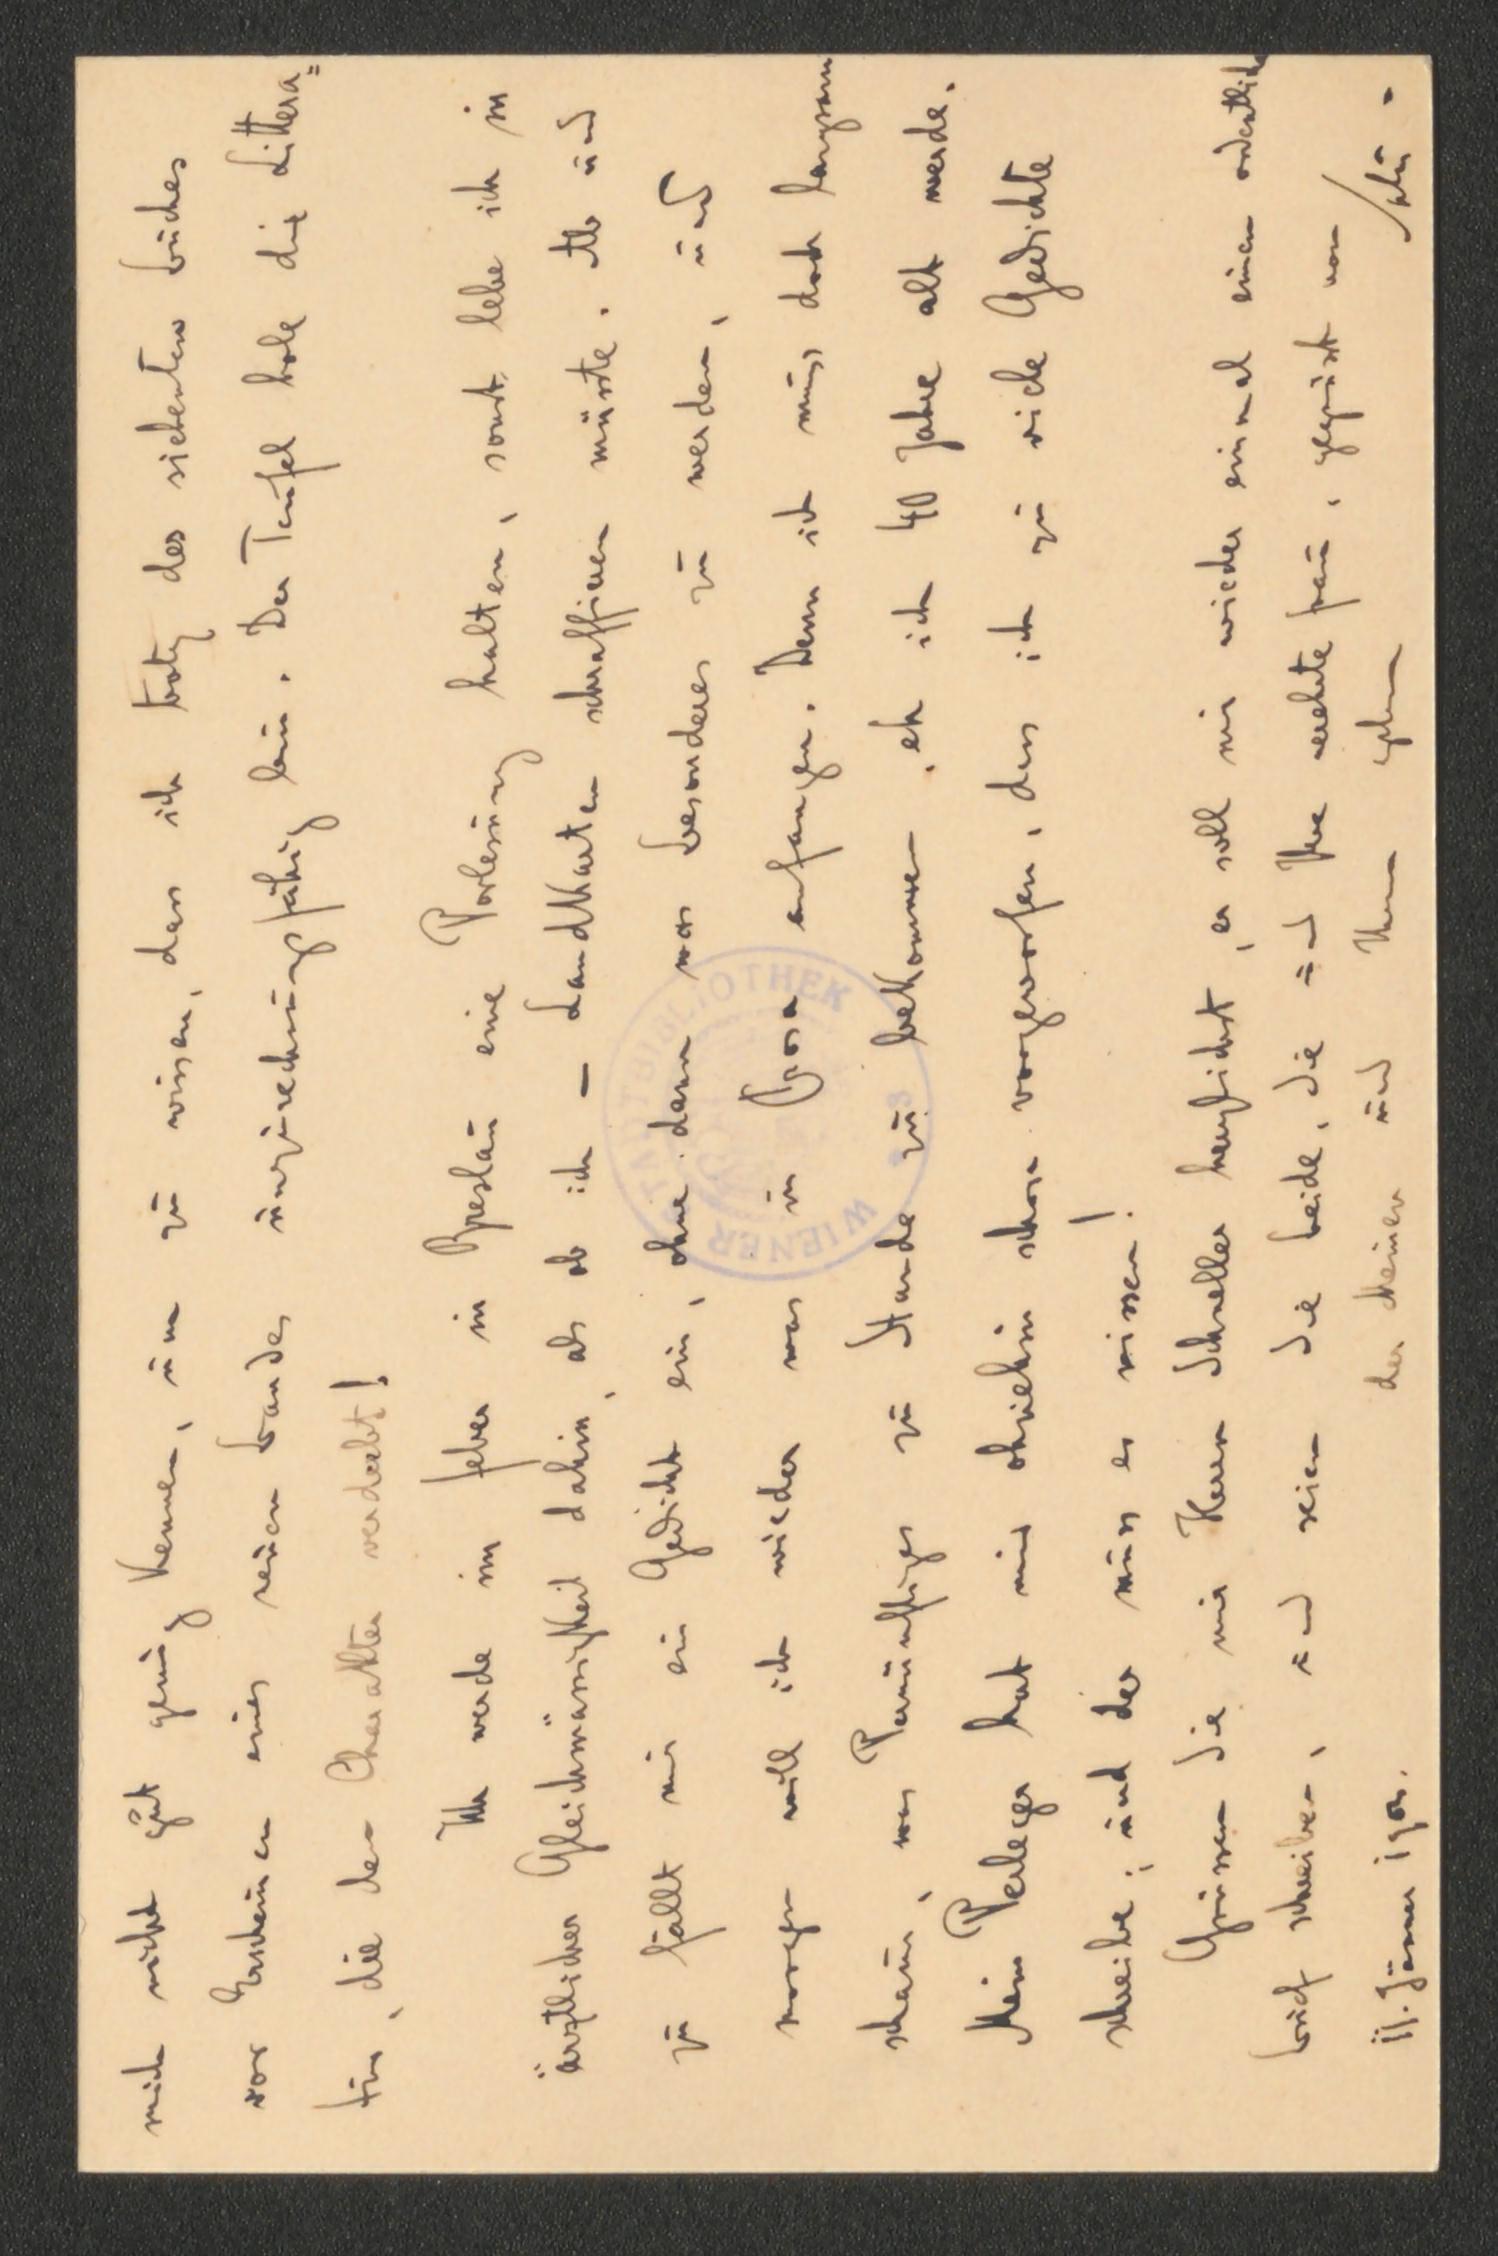 mich nicht gut genug kennen, um zu wissen, dass ich trotz des siebenten buches
vor Erscheinen eines neuen bandes unzurechnungsfähig bin. Der Teufel hole die Littera=
tur, die den Charakter verdirbt!
Ich werde im feber in Breslau eine Vorlesung halten, sonst lebe ich in
ärztlicher Gleichmässigkeit dahin, als ob ich – Landkarten schraffieren müsste. Ab und
zu fällt mir ein Gedicht ein, ohne dann was besonderes zu werden, und
morgen will ich wieder was in Prosa anfangen. Denn ich muss doch langsam
schaun, was Vernünftiges zu Stande zu bekommen, eh ich 40 Jahre alt werde.
Mein Verleger hat mir ohniehin schon vorgeworfen, dass ich zu viele Gedichte
schreibe; und der muss es wissen!
Grüssen Sie mir Herrn Scheller herzlichst, er soll mir wieder einmal einen ordentlichen
brief schreiben, und seien Sie beide, Sie und Ihre verehrte frau, gegrüsst von
der Meinen und Ihrem
11. Jänner
WIENER STADTBIBLIOTHEK